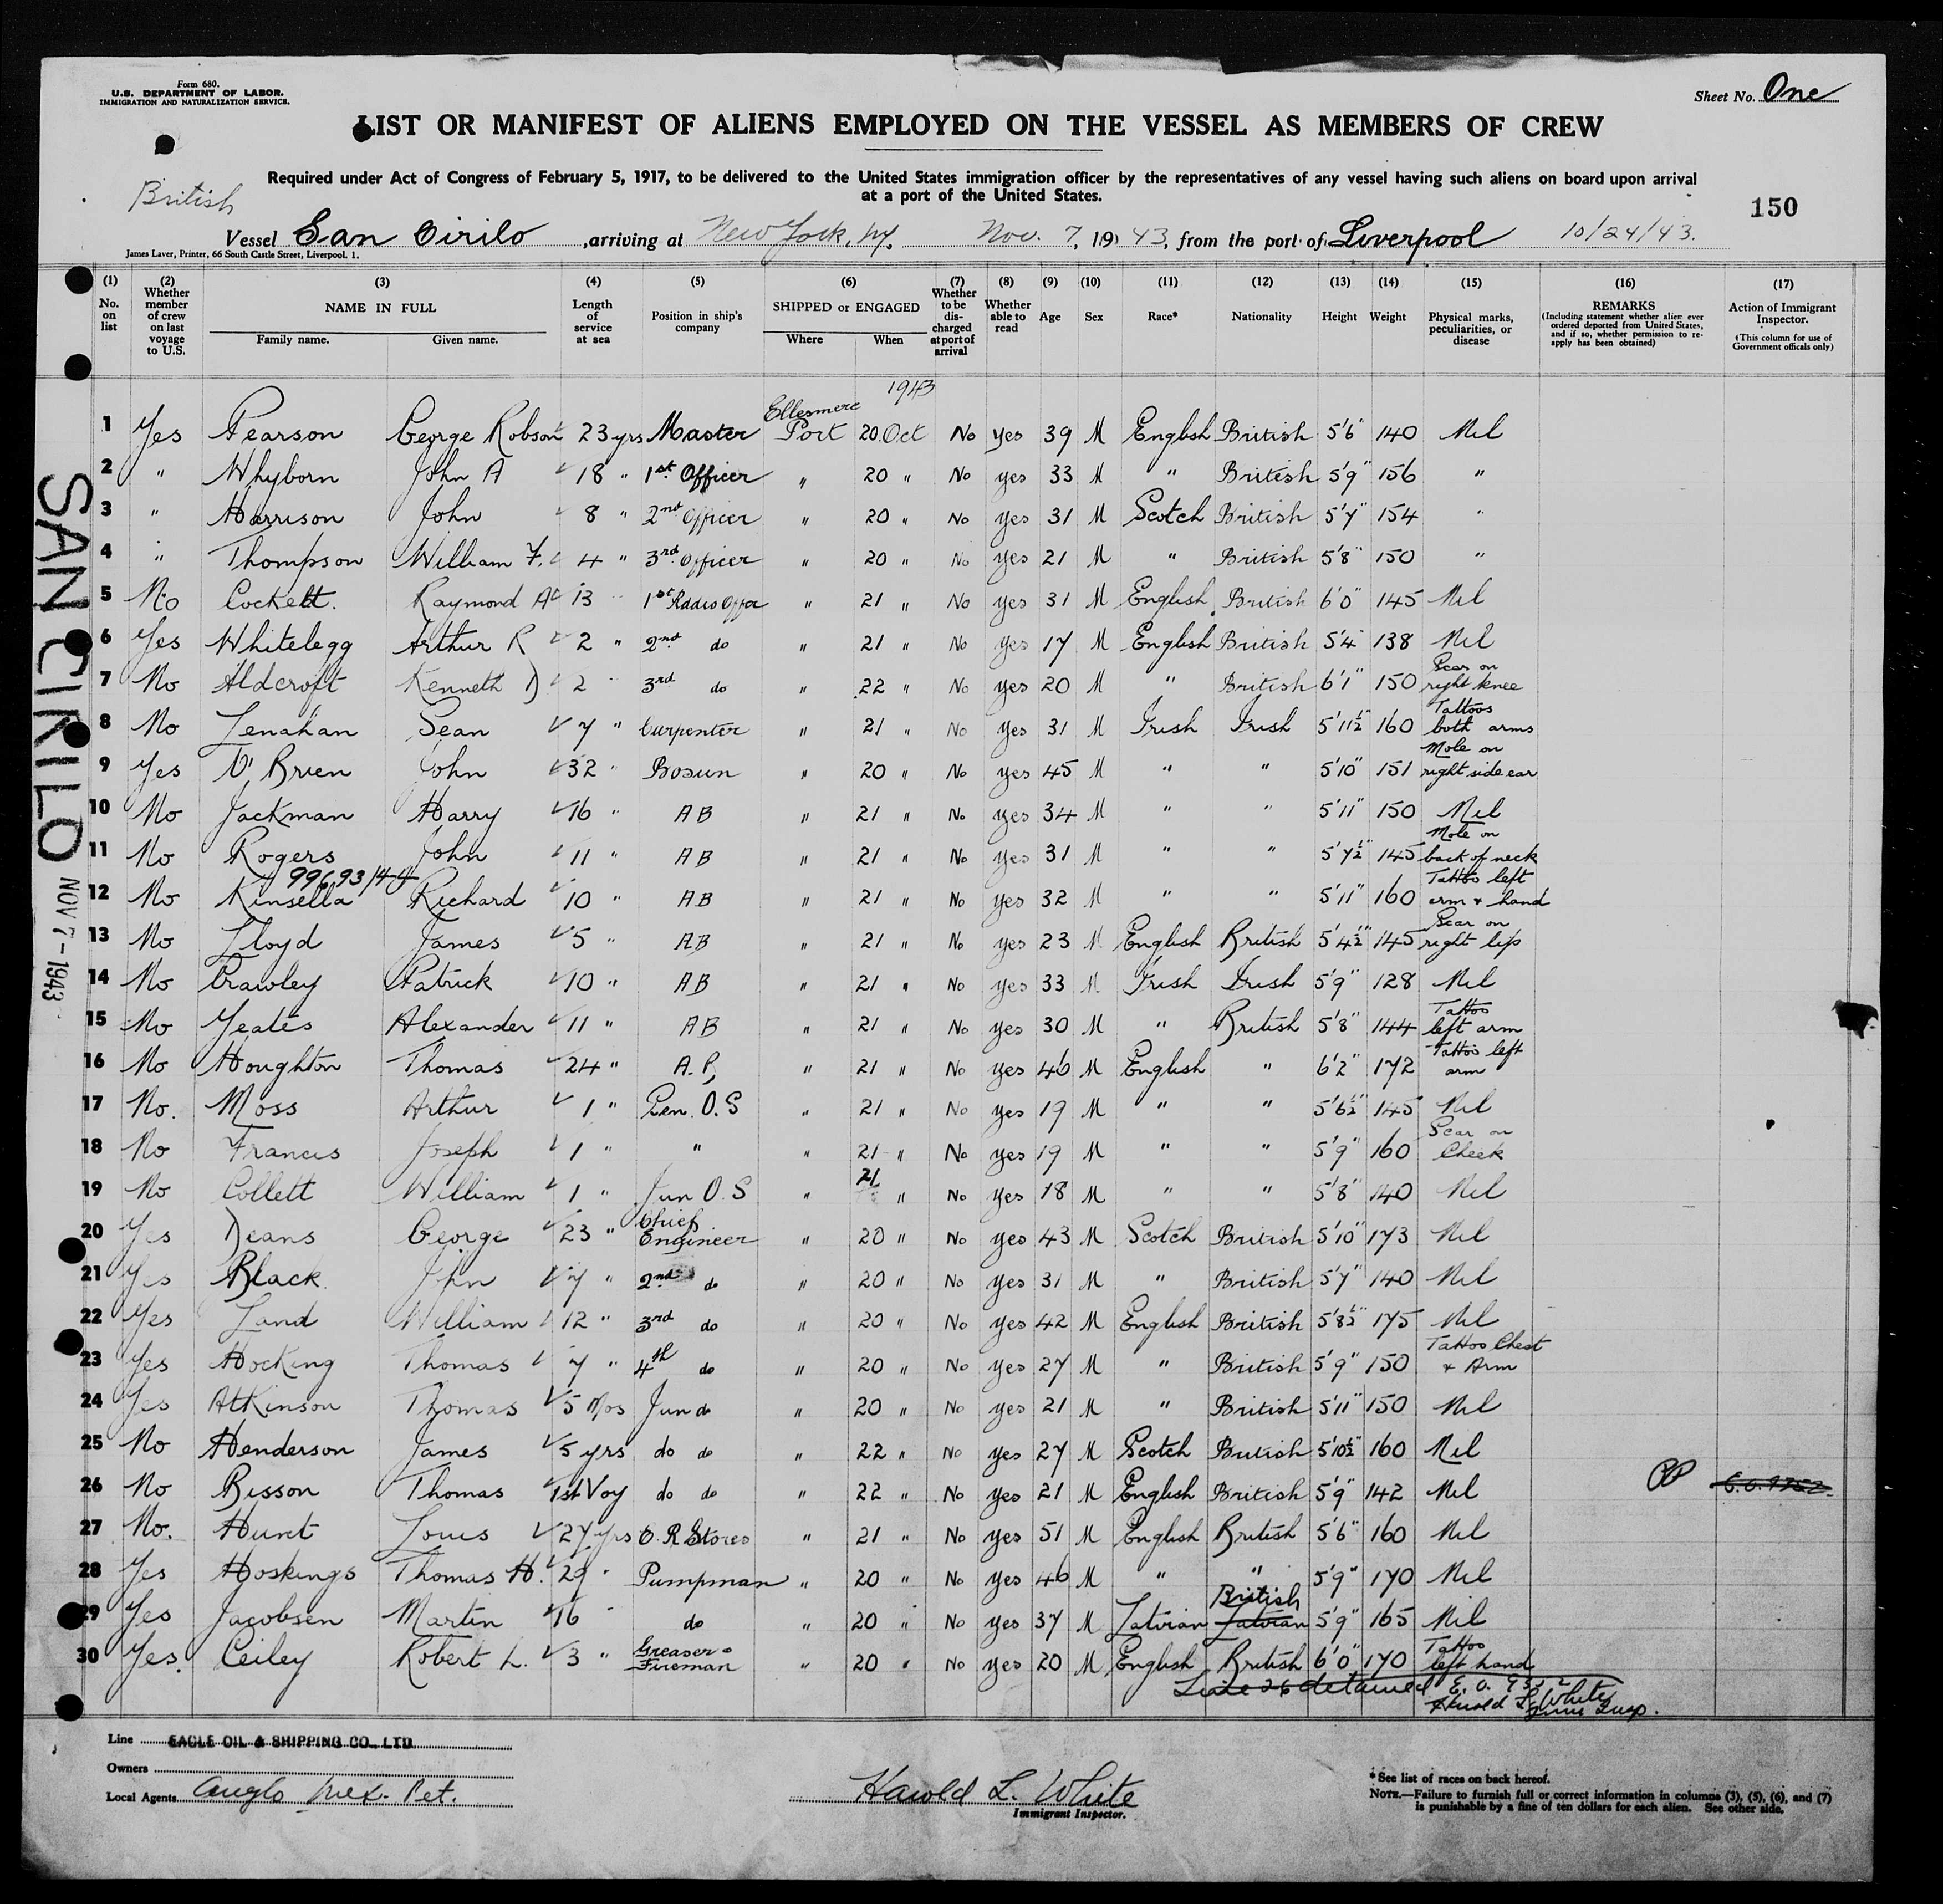 Form 680.
U.S. DEPARTMENT OF LABOR.
IMMIGRATION AND NATURALIZATION SERVICE.
Sheet No. One
LIST OR MANIFEST OF ALIENS EMPLOYED ON THE VESSEL AS MEMBERS OF CREW
Required under Act of Congress of February 5, 1917, to be delivered to the United States immigration officer by the representatives of any vessel having such aliens on board upon arrival
at a port of the United States.
British
150
Vessel San Cirilo, arriving at New York, Ny. Nov. 7, 1943, from the port of Liverpool 10/24/43.
James Laver, Printer, 66 South Castle Street, Liverpool. 1.
(1) No. on list
(2) Whether member of crew on last voyage to U.S.
(3) NAME IN FULL Family name. Given name.
(4) Length of service at sea
(5) Position in ship's company
(6) SHIPPED or ENGAGED Where When
(7) Whether to be discharged at port of arrival
(8) Whether able to read
(9) Age
(10) Sex
(11) Race*
(12) Nationality
(13) Height
(14) Weight
(15) Physical marks, peculiarities, or disease
(16) REMARKS (Including statement whether alien ever ordered deported from United States, and if so, whether permission to re-apply has been obtained)
(17) Action of Immigrant Inspector. (This column for use of Government officials only)
1943
1 Yes Pearson George Robson 23 yrs Master Ellesmere Port 20 Oct No yes 39 M English British 5'6" 140 Nil
2 " Whyborn John A 18 " 1st Officer " 20 " No yes 33 M " British 5'9" 156 "
3 " Harrison John 8 " 2nd Officer " 20 " No yes 31 M Scotch British 5'7" 154 "
4 " Thompson William F. 4 " 3rd Officer " 20 " No yes 21 M " British 5'8" 150 "
5 No Cockett. Raymond A 13 " 1st Radio Offcr " 21 " No yes 31 M English British 6'0" 145 Nil
6 Yes Whitelegg Arthur R 2 " 2nd do " 21 " No yes 17 M English British 5'4" 138 Nil
7 No Aldcroft Kenneth D 2 " 3rd do " 22 " No yes 20 M " British 6'1" 150 Scar on right knee
8 No Lenahan Sean 7 " Carpenter " 21 " No yes 31 M Irish Irish 5'11½" 160 Tattoos both arms
9 Yes O'Brien John 32 " Bosun " 20 " No yes 45 M " " 5'10" 151 Mole on right side ear
10 No Jackman Harry 16 " AB " 21 " No yes 34 M " " 5'11" 150 Nil
11 No Rogers John 11 " AB " 21 " No yes 31 M " " 5'7½" 145 Mole on back of neck
12 No Kinsella Richard 10 " AB " 21 " No yes 32 M " " 5'11" 160 Tattoo left arm & hand
13 No Lloyd James 5 " AB " 21 " No yes 23 M English British 5'4½" 145 Scar on right lip
14 No Crawley Patrick 10 " AB " 21 " No yes 33 M Irish Irish 5'9" 128 Nil
15 No Yeates Alexander 11 " AB " 21 " No yes 30 M " British 5'8" 144 Tattoo left arm
16 No Houghton Thomas 24 " A.B " 21 " No yes 46 M English " 6'2" 172 Tattoo left arm
17 No. Moss Arthur 1 " Sen. O.S " 21 " No yes 19 M " " 5'6½" 145 Nil
18 No Francis Joseph 1 " " " 21 " No yes 19 M " " 5'9" 160 Scar on Cheek
19 No Collett William 1 " Jun O.S " 21 " No yes 18 M " " 5'8" 140 Nil
20 Yes Deans George 23 " Chief Engineer " 20 " No yes 43 M Scotch British 5'10" 173 Nil
21 Yes Black John 7 " 2nd do " 20 " No yes 31 M " British 5'7" 140 Nil
22 Yes Land William 12 " 3rd do " 20 " No yes 42 M English British 5'8½" 175 Nil
23 Yes Hocking Thomas 7 " 4th do " 20 " No yes 27 M " British 5'9" 150 Tattoo Chest & Arm
24 Yes Atkinson Thomas 5 Mos Jun do " 20 " No yes 21 M " British 5'11" 150 Nil
25 No Henderson James 5 yrs do do " 22 " No yes 27 M Scotch British 5'10½" 160 Nil
26 No Bisson Thomas 1st Voy do do " 22 " No yes 21 M English British 5'9" 142 Nil
27 No. Hunt Louis 27 yrs E.R Stores " 21 " No yes 51 M English British 5'6" 160 Nil
28 Yes Hoskings Thomas H. 29 " Pumpman " 20 " No yes 46 M " " 5'9" 170 Nil
29 Yes Jacobsen Martin 16 " do " 20 " No yes 37 M Latvian British Latvian 5'9" 165 Nil
30 Yes. Ceiley Robert L. 3 " Greaser Fireman " 20 " No yes 20 M English British 6'0" 170 Tattoo left hand
Line 26 detained E.O. 9352
Harold L White
Imm Insp.
SAN CIRILO NOV 7-1943
Line EAGLE OIL & SHIPPING CO., LTD.
Owners
Local Agents Anglo Mex. Pet.
Harold L. White
Immigrant Inspector.
*See list of races on back hereof.
NOTE.—Failure to furnish full or correct information in columns (3), (5), (6), and (7)
is punishable by a fine of ten dollars for each alien. See other side.